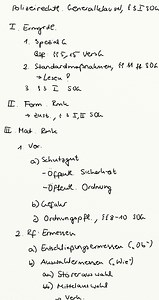 Polizeirechtl. Generalklausel, § 3 I SOG
I Ermgrdl.
1. Spezial G
2. Standardmaßnahmen, §§ 11 ff SOG
→ Lesen?
3. § 3 I SOG
II Form. Rmk
→ Zust., § 3 I, II SOG
III Mat. Rmk
1. Vor.
a) Schutzgut
- Öffentl. Sicherheit
- Öffentl. Ordnung
b) Gefahr
c) Ordnungspfl., §§ 8-10 SOG
2. Rf. Ermessen
a) Entschließungsermessen ("Ob")
b) Auswahlermessen ("Wie")
aa) Störerauswahl
bb) Mittelauswahl